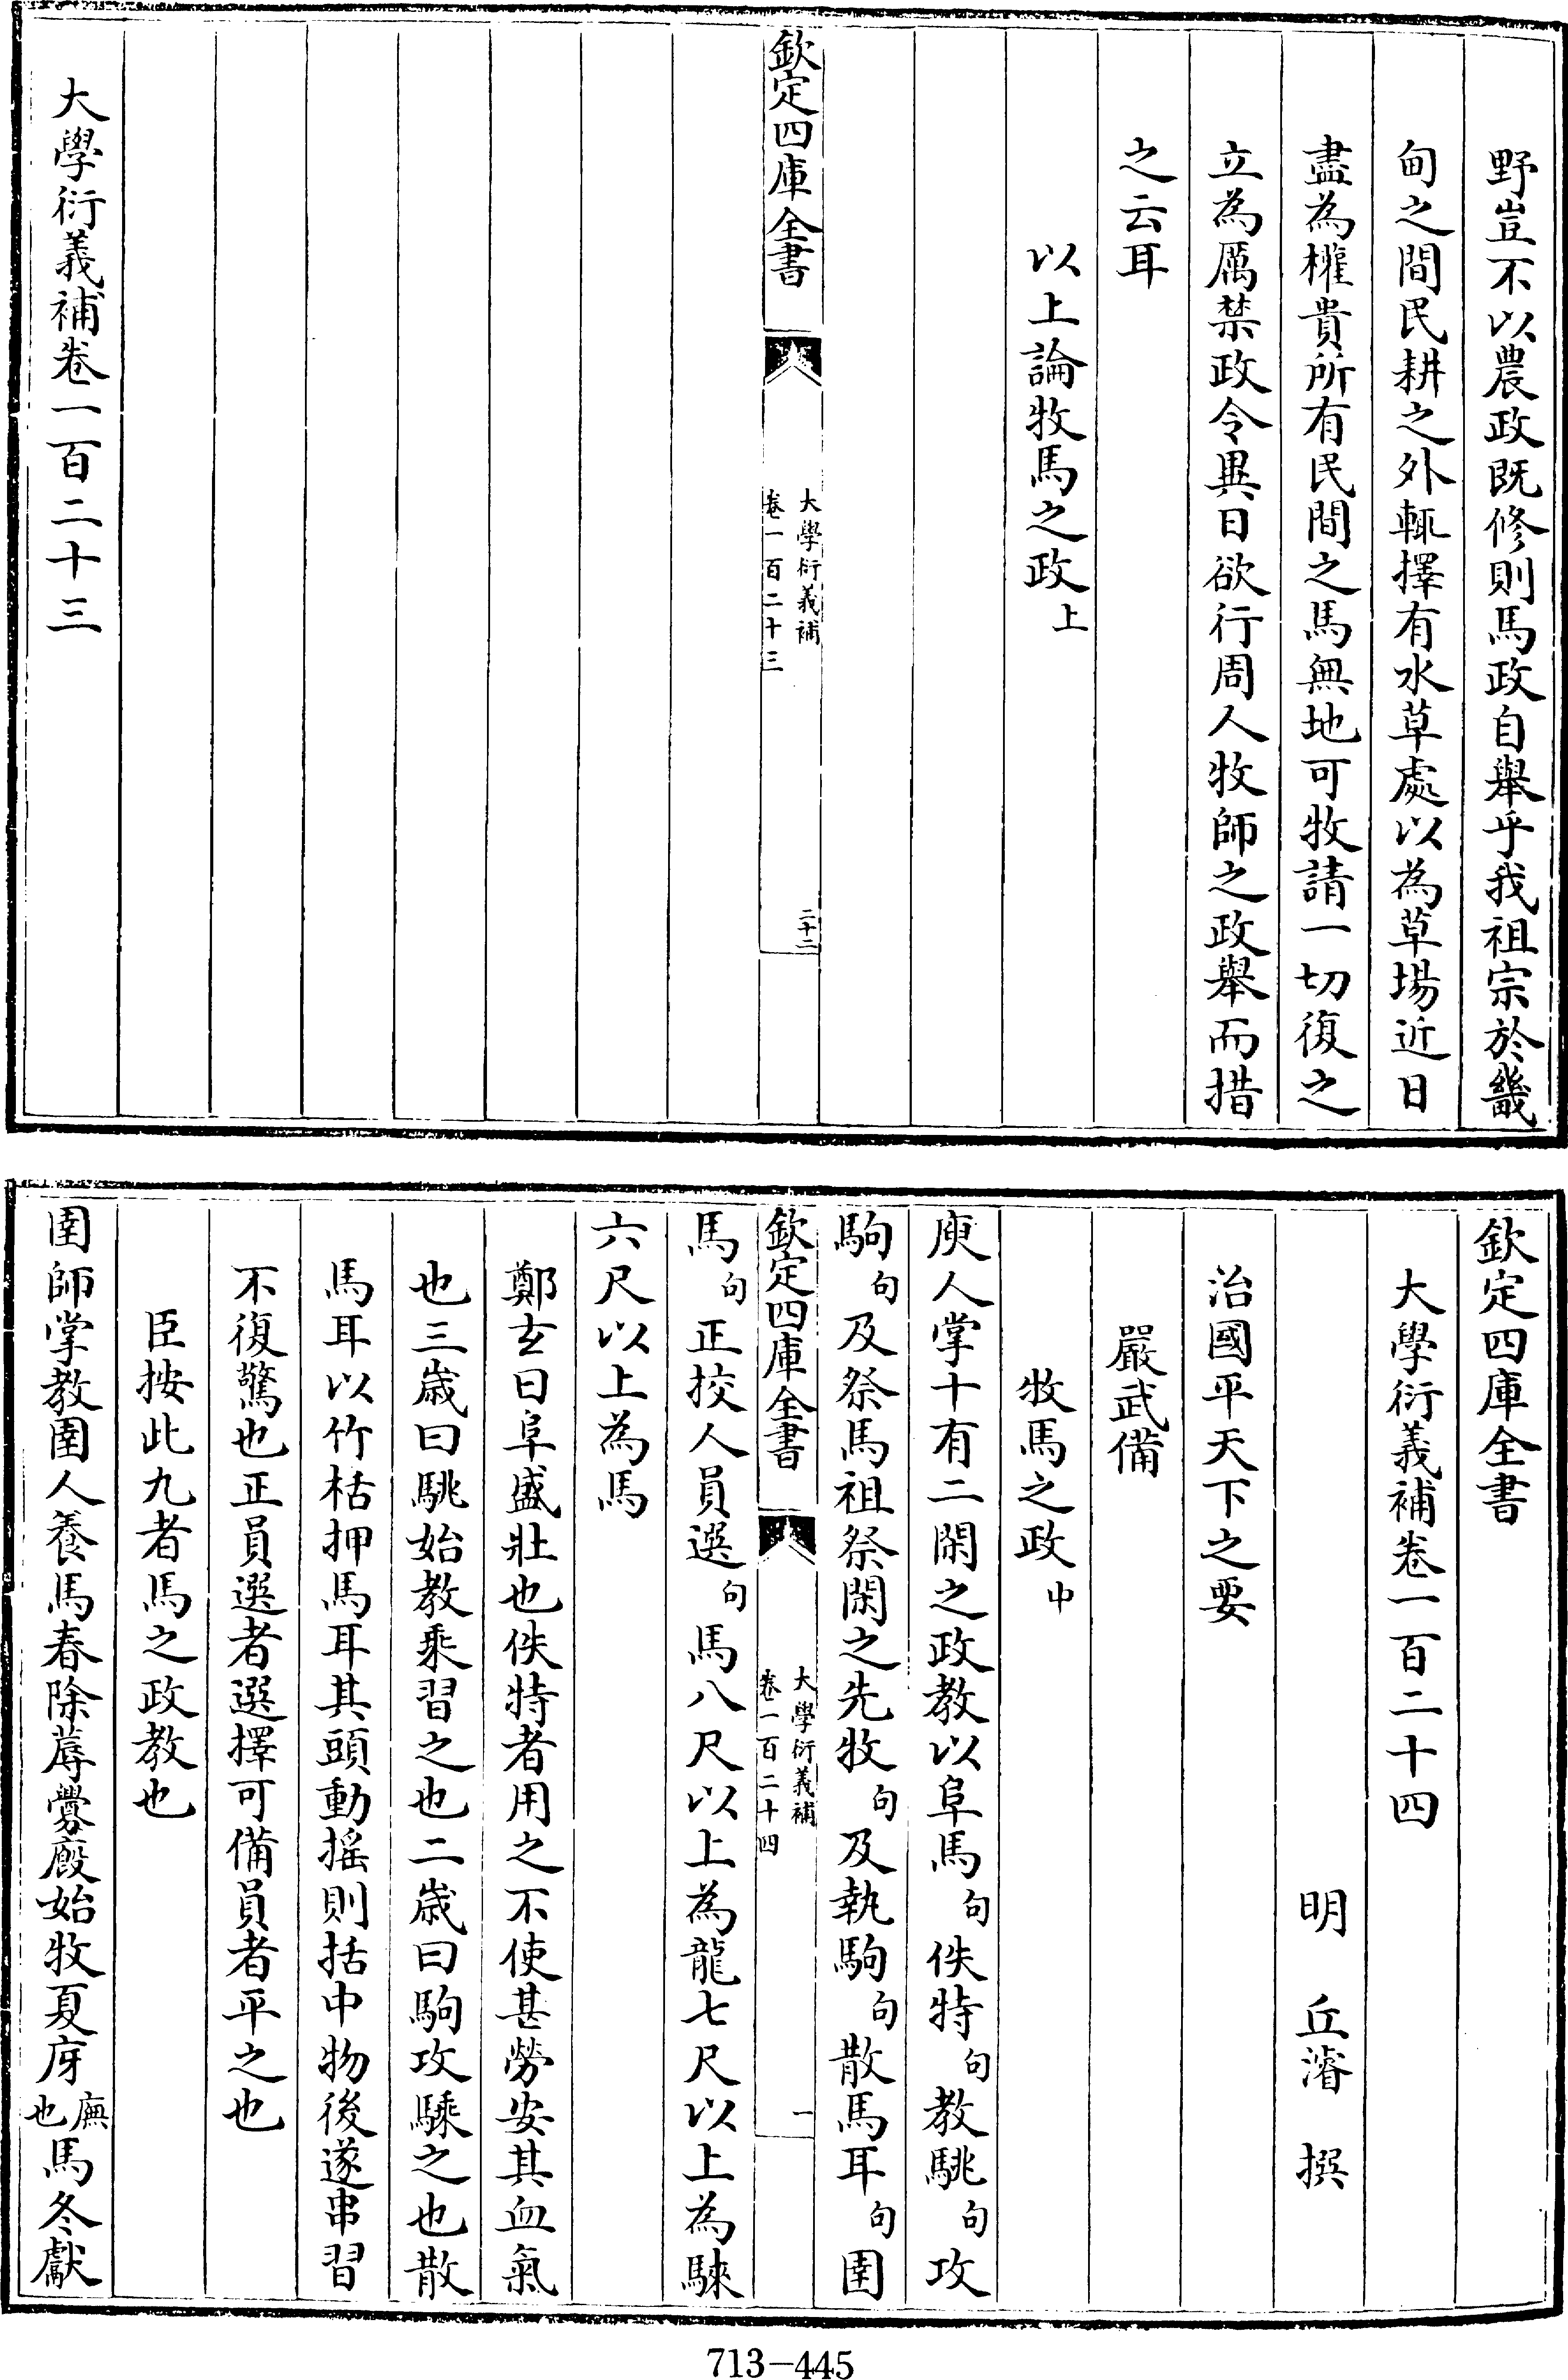 野豈不以農政既修則馬政自舉乎我祖宗於畿
甸之間民耕之外輒擇有水草處以為草場近日
盡為權貴所有民間之馬無地可牧請一切復之
立為厲禁政令異日欲行周人牧師之政舉而措
之云耳
以上論牧馬之政上
欽定四庫全書
大學衍義補
卷一百二十三
二十二
大學衍義補卷一百二十三
欽定四庫全書
大學衍義補卷一百二十四
明 丘濬 撰
治國平天下之要
嚴武備
牧馬之政中
庾人掌十有二閑之政教以阜馬句佚特句教駣句攻
駒句及祭馬祖祭閑之先牧句及執駒句散馬耳句圉
欽定四庫全書
大學衍義補
卷一百二十四
一
馬句正挍人員選句馬八尺以上為龍七尺以上為騋
六尺以上為馬
鄭玄曰阜盛壯也佚特者用之不使甚勞安其血氣
也三歲曰駣始教乘習之也二歲曰駒攻騬之也散
馬耳以竹栝押馬耳其頭動搖則括中物後遂串習
不復驚也正員選者選擇可備員者平之也
臣按此九者馬之政教也
圉師掌教圉人養馬春除蓐釁廄始牧夏庌廡也馬冬獻
713-445